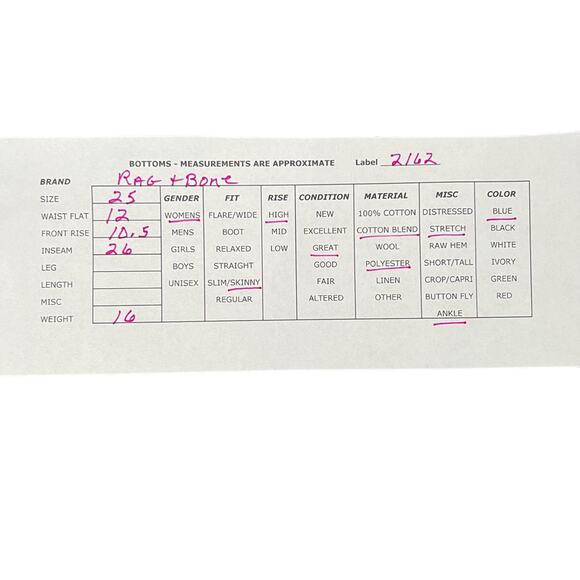 BOTTOMS - MEASUREMENTS ARE APPROXIMATE Label 2162
BRAND RAG + BONE
SIZE 25 GENDER FIT RISE CONDITION MATERIAL MISC COLOR
WAIST FLAT 12 WOMENS FLARE/WIDE HIGH NEW 100% COTTON DISTRESSED BLUE
FRONT RISE 10.5 MENS BOOT MID EXCELLENT COTTON BLEND STRETCH BLACK
INSEAM 26 GIRLS RELAXED LOW GREAT WOOL RAW HEM WHITE
LEG BOYS STRAIGHT GOOD POLYESTER SHORT/TALL IVORY
LENGTH UNISEX SLIM/SKINNY FAIR LINEN CROP/CAPRI GREEN
MISC REGULAR ALTERED OTHER BUTTON FLY RED
WEIGHT 16 ANKLE